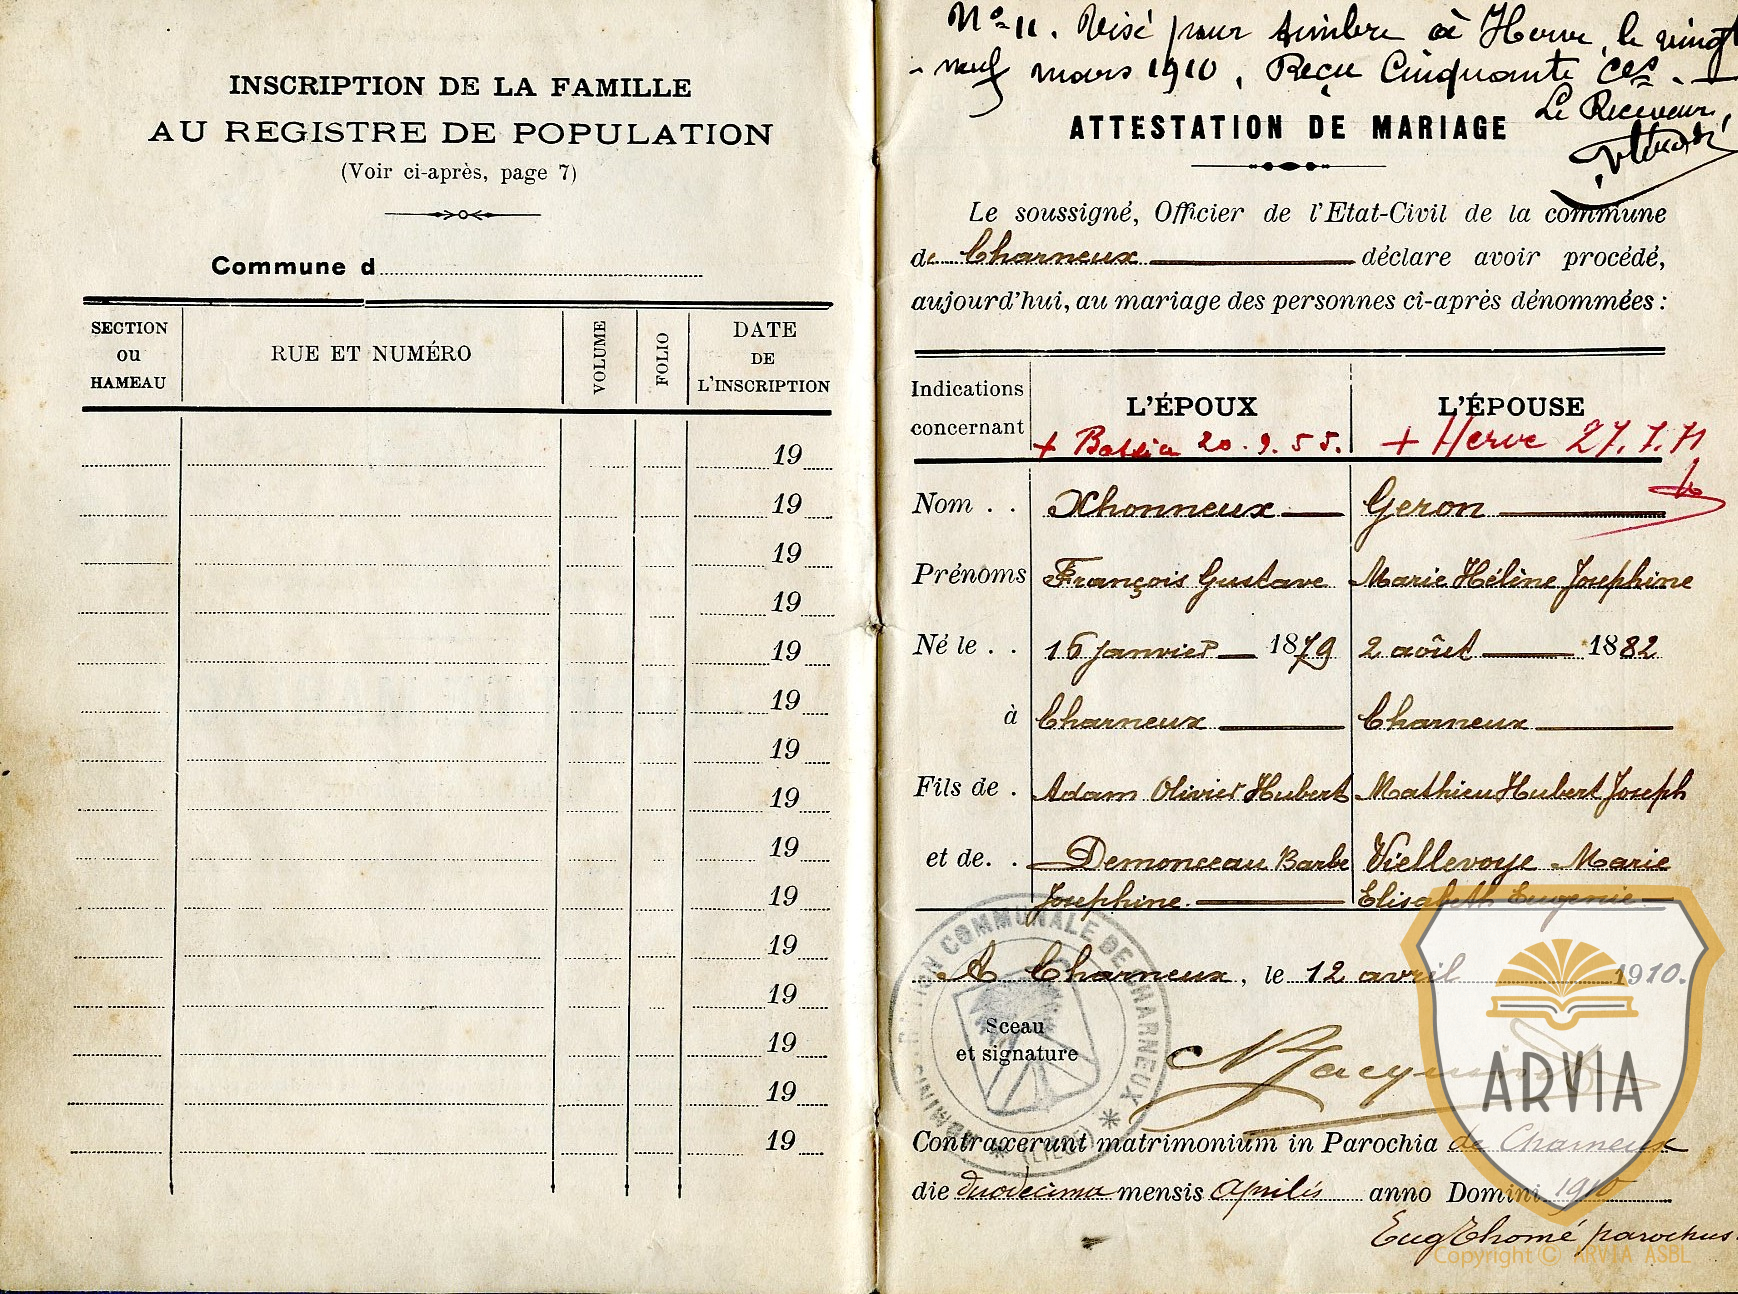 INSCRIPTION DE LA FAMILLE
AU REGISTRE DE POPULATION
(Voir ci-après, page 7)
Commune d
SECTION ou HAMEAU
RUE ET NUMÉRO
VOLUME
FOLIO
DATE DE L'INSCRIPTION
19
19
19
19
19
19
19
19
19
19
19
19
19
19
19
No 11. Visé pour timbre à Herve, le vingt
neuf mars 1910, Reçu Cinquante ces.
Le Receveur,
ATTESTATION DE MARIAGE
Le soussigné, Officier de l'Etat-Civil de la commune
de Charneux déclare avoir procédé,
aujourd'hui, au mariage des personnes ci-après dénommées :
Indications concernant
L'ÉPOUX
L'ÉPOUSE
+ 20.9.55.
+ Herve 27.7.71
Nom . . Xhonneux Geron
Prénoms François Gustave Marie Hélène Josephine
Né le . . 16 janvier 1879 2 août 1882
à Charneux Charneux
Fils de . Adam Olivier Hubert Mathieu Hubert Joseph
et de. . Demonceau Barbe Viellevoye Marie
Josephine Elisabeth Eugenie
A Charneux, le 12 avril 1910.
Sceau
et signature
ADMINISTRATION COMMUNALE DE CHARNEUX * (LIEGE) *
Contraxerunt matrimonium in Parochia de Charneux
die duodecima mensis Aprilis anno Domini 1910
Eug Thomé parochus
ARVIA
Copyright © ARVIA ASBL